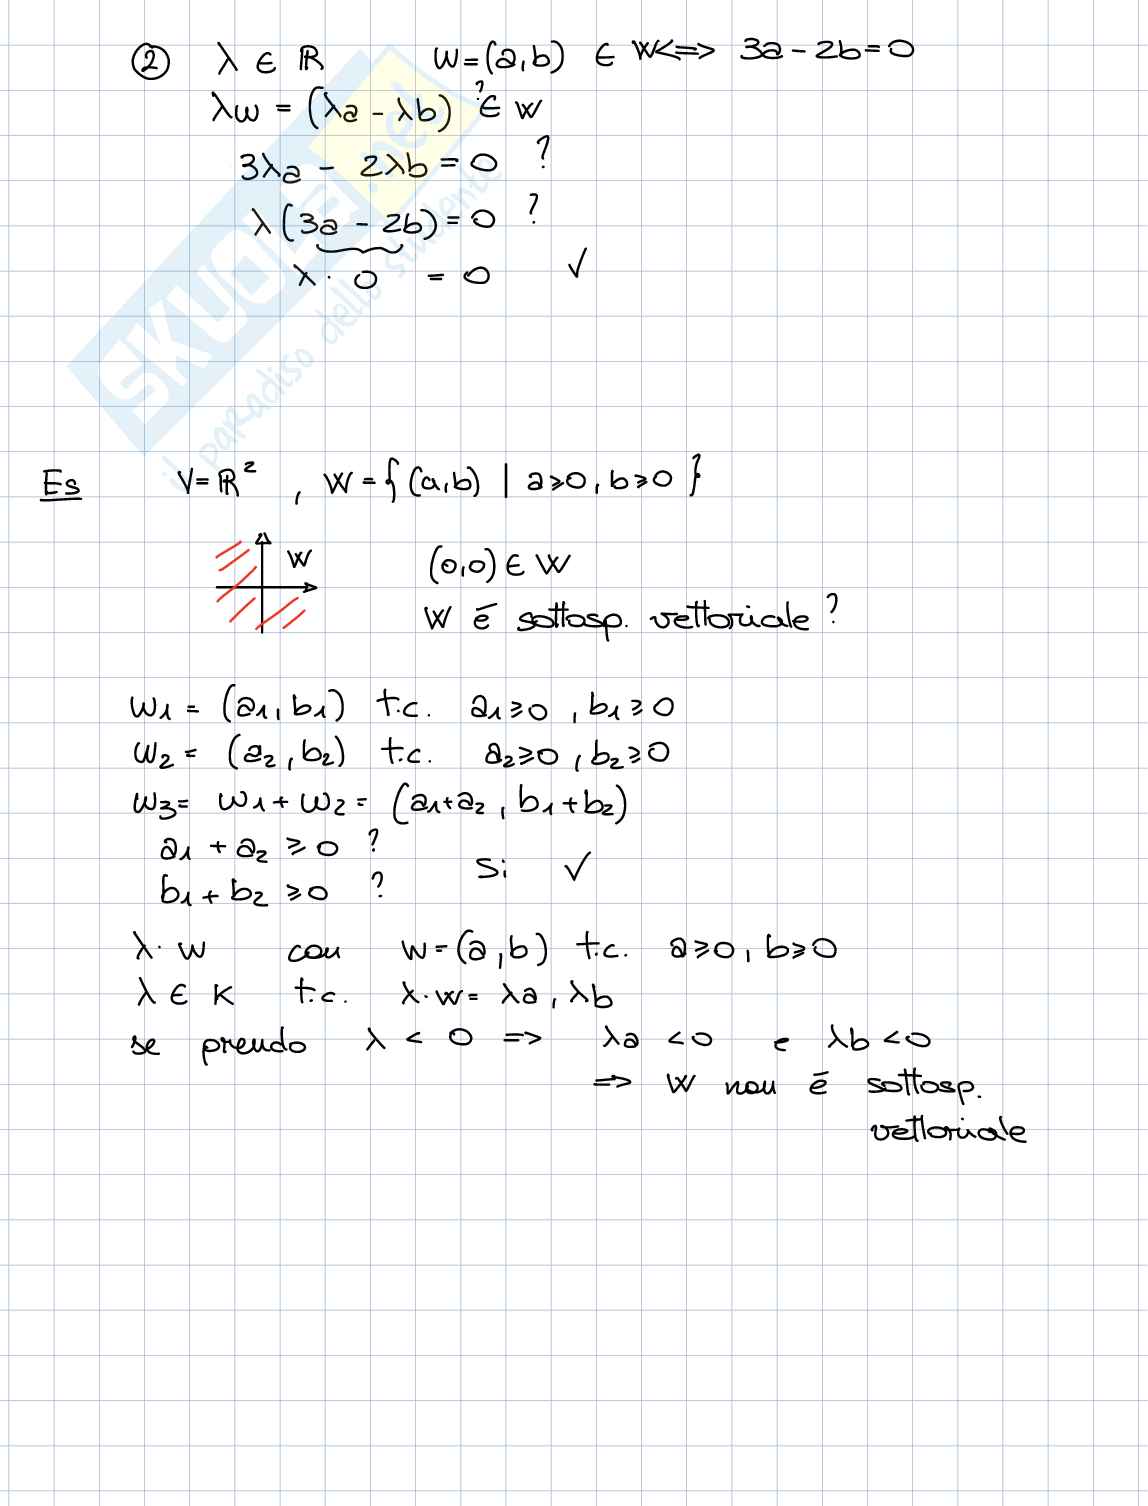 ② λ ∈ ℝ w=(a,b) ∈ W<=> 3a-2b=0
λw = (λa - λb) ?∈ W
3λa - 2λb = 0 ?
λ(3a - 2b) = 0 ?
λ · 0 = 0 ✓
SKUOLA.net
il paradiso dello studente
Es V=ℝ² , W={(a,b) | a≥0, b≥0}
W
(0,0) ∈ W
W é sottosp. vettoriale ?
w₁ = (a₁, b₁) t.c. a₁≥0 , b₁≥0
w₂ = (a₂, b₂) t.c. a₂≥0 , b₂≥0
w₃= w₁ + w₂ = (a₁+a₂ , b₁+b₂)
a₁ + a₂ ≥ 0 ?
Si ✓
b₁ + b₂ ≥0 ?
λ· w con w=(a,b) t.c. a≥0, b≥0
λ ∈ K t.c. λ·w= λa , λb
se prendo λ < 0 => λa <0 e λb <0
=> W non é sottosp.
vettoriale